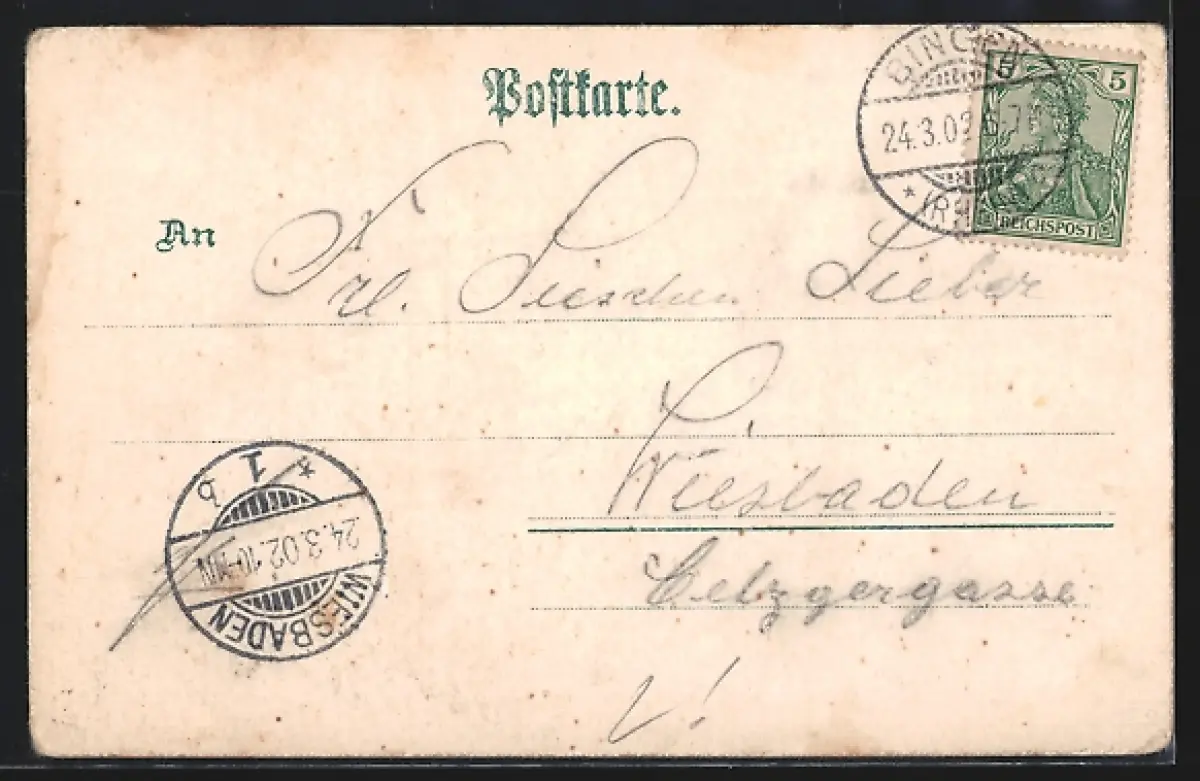 Postkarte.
BINGEN
24.3.02 6-7
* (RHEIN)
5 5
REICHSPOST
An Frl. Lieschen Lieber
Wiesbaden
Metzgergasse
* 1 b
24.3.02.10-11N
WIESBADEN